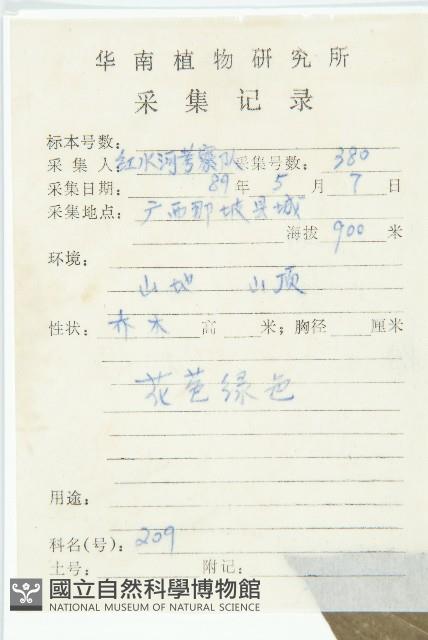 华南植物研究所
采集记录
标本号数：
采集人 红水河考察队 采集号数：380
采集日期： 89年 5 月 7 日
采集地点：广西那坡县城
海拔 900 米
环境：
山地 山顶
性状：乔木 高 米；胸径 厘米
花苞绿色
用途：
科名(号)：209
土号： 附记：
國立自然科學博物館
NATIONAL MUSEUM OF NATURAL SCIENCE